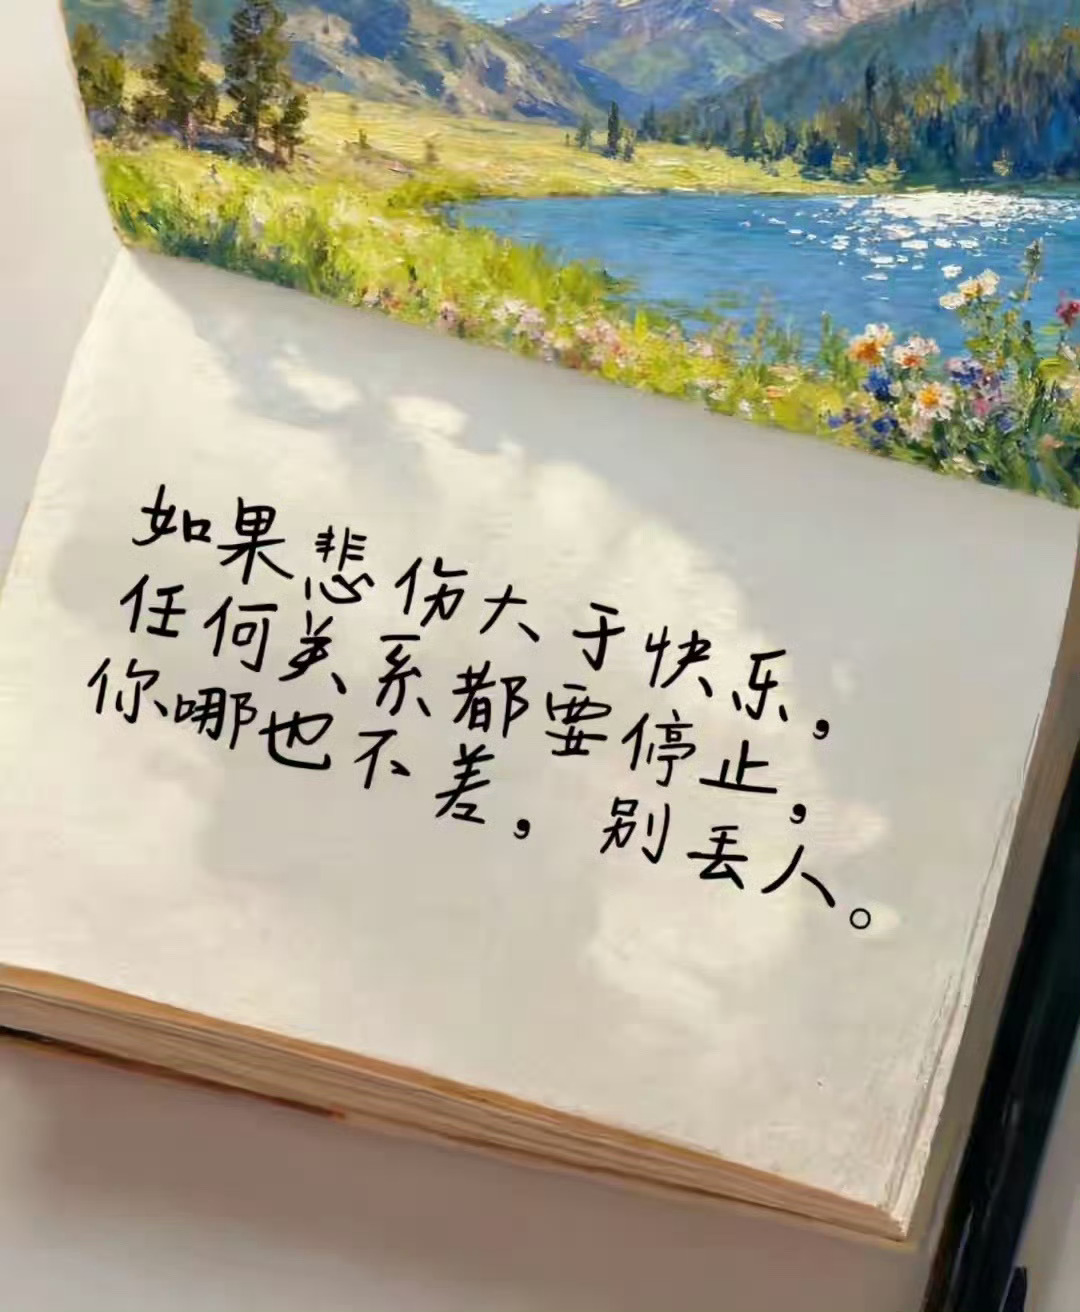 如果悲伤大于快乐，
任何关系都要停止，
你哪也不差，别丢人。